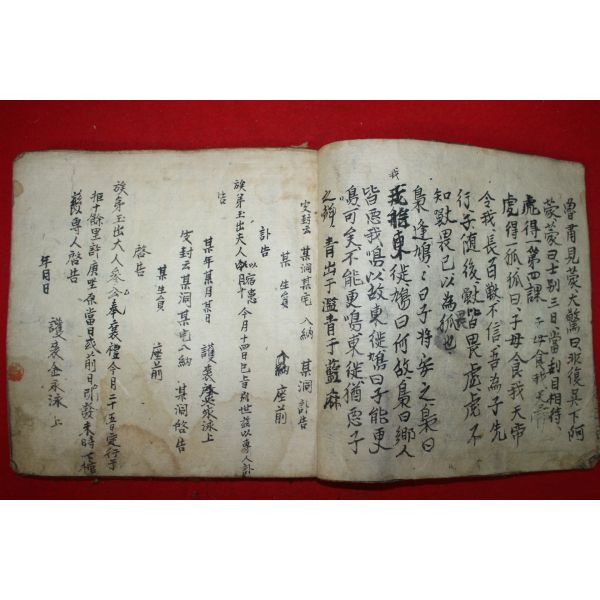 魯肅見蒙大驚曰非復吳下阿
蒙蒙曰士別三日當刮目相待
虎得一第四課 子母食我天帝
虎得一狐狐曰子母食我天帝
令我長百獸不信吾為子先
行子隨後獸皆畏虎虎不
知獸畏己以為狐也
梟逢鳩鳩曰子將安之梟曰
我
我將東徙鳩曰何故梟曰鄉人
皆惡我鳴以故東徙鳩曰子能更
鳴可矣不能更鳴東徙猶惡子
之鳴 青出于藍青于藍麻
皮封云 某洞某宅入納 某洞訃告
某生員 座前
訃告
族弟玉出大人以宿患
今月十四日巳時別世玆以專人訃
告
某年某月某日 護喪金永泳上
皮封云某洞某宅入納 某洞啓告
某生員 座前
啓告
族弟玉出大人 奉襄禮今月二十五日定行于
距十餘里許庚坐原當日或前日引發未時下棺
玆專人啓告
年月日 護喪金永泳上